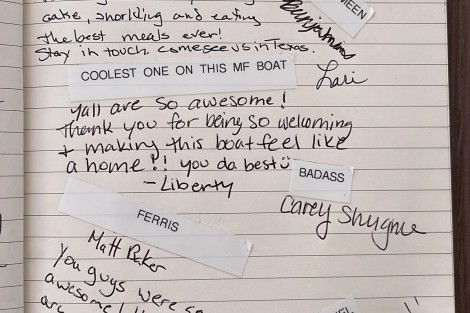 cake, snorkling and eating
the best meals ever!
Stay in touch. come see us in Texas.
Lari
COOLEST ONE ON THIS MF BOAT
Yall are so awesome!
Thank you for being so welcoming
+ making this boat feel like
a home!! you da best
- Liberty
BADASS
Carey
FERRIS
Matt Baker
You guys were so
awesome!
are